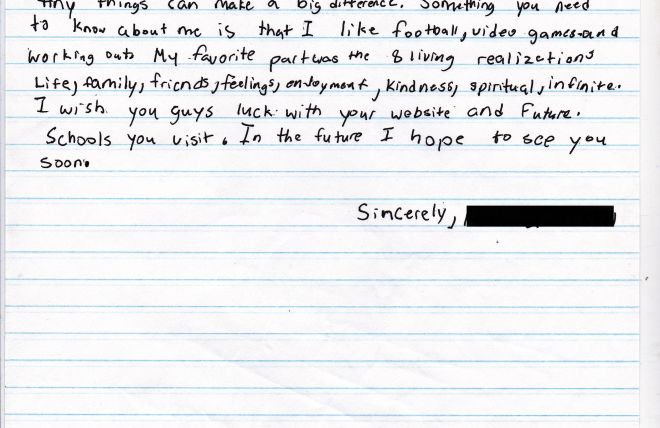 tiny things can make a big difference. Something you need
to know about me is that I like football, video games and
working out. My favorite part was the 8 living realizations
Life, family, friends, feelings, enjoyment, kindness, spiritual, infinite.
I wish you guys luck with your website and Future.
Schools you visit. In the future I hope to see you
soon.
Sincerely,